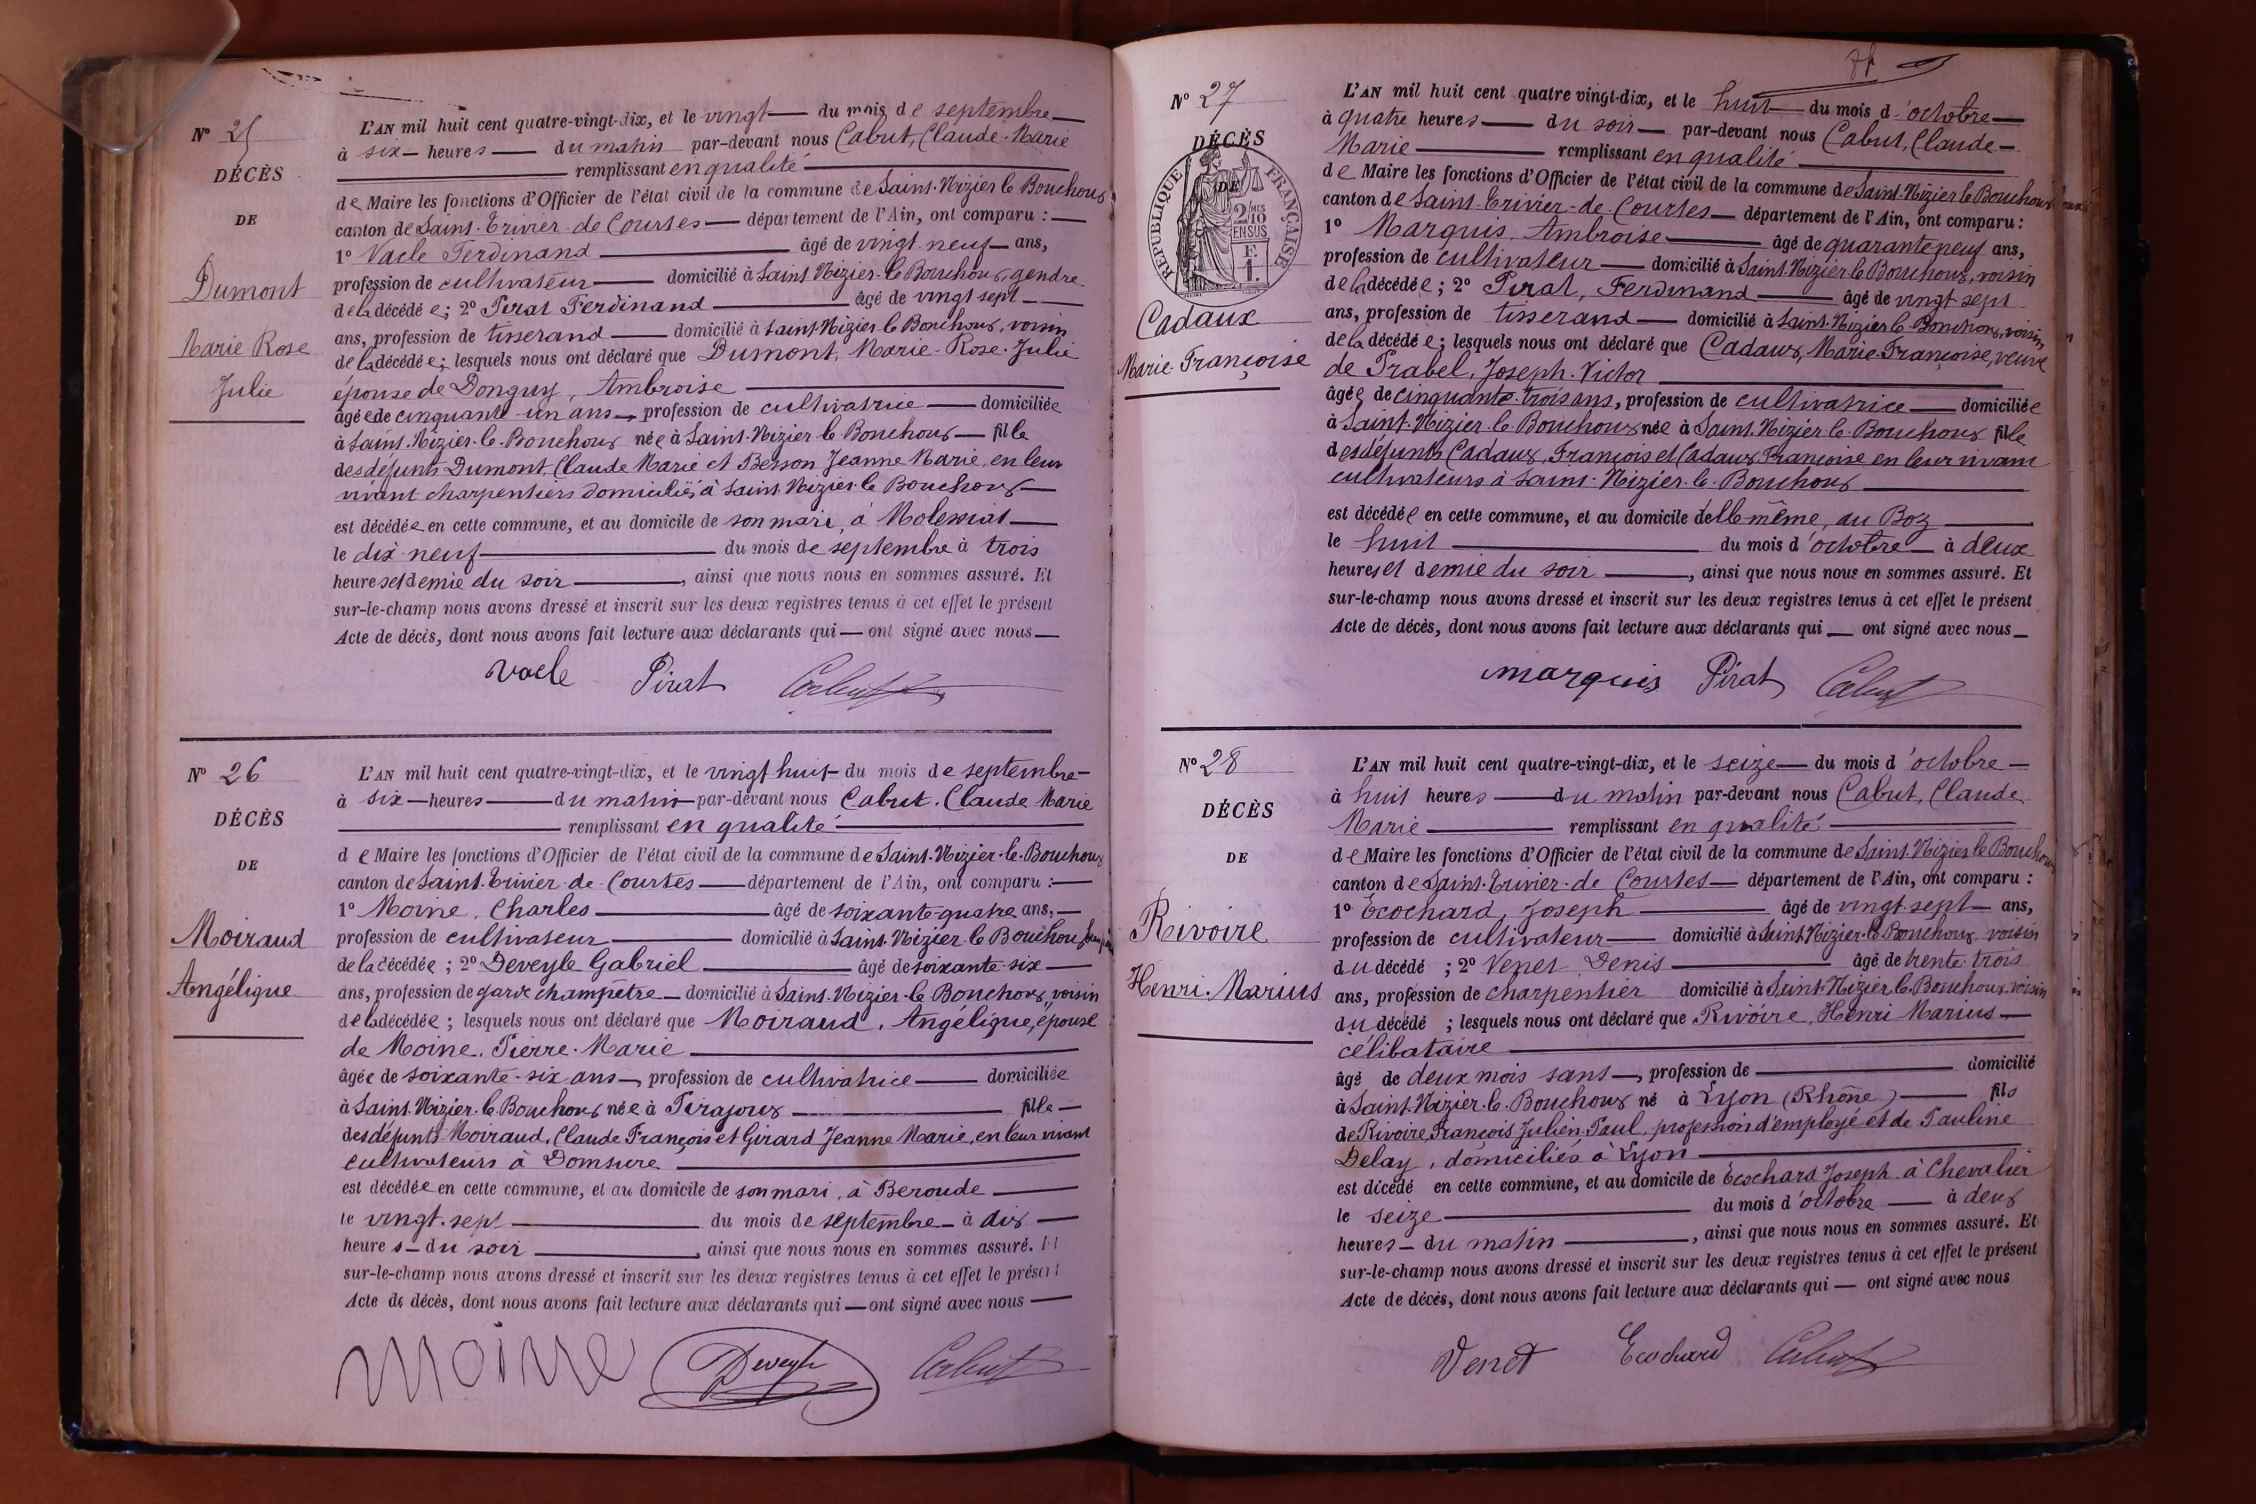 Nº 25
DÉCÈS
DE
Dumont
Marie Rose
Julie
L'AN mil huit cent quatre-vingt-dix, et le vingt — du mois de septembre —
à six — heures — du matin par-devant nous Cabut, Claude-Marie
remplissant en qualité
de Maire les fonctions d'Officier de l'état civil de la commune de Saint-Nizier le Bouchoux
canton de Saint-Trivier-de Courtes — département de l'Ain, ont comparu : —
1º Vacle Ferdinand — âgé de vingt neuf — ans,
profession de cultivateur — domicilié à Saint Nizier-le Bouchoux, gendre
de la décédée; 2º Pirat Ferdinand — âgé de vingt sept —
ans, profession de tisserand — domicilié à Saint Nizier le Bouchoux, voisin
de la décédée; lesquels nous ont déclaré que Dumont, Marie-Rose-Julie
épouse de Donguy, Ambroise —
âgée de cinquante-un ans —, profession de cultivatrice — domiciliée
à Saint-Nizier-le-Bouchoux née à Saint-Nizier le Bouchoux — fille
des défunts Dumont, Claude Marie et Besson Jeanne Marie, en leur
vivant charpentiers domiciliés à Saint Nizier-le Bouchoux —
est décédée en cette commune, et au domicile de son mari, à Molessiat —
le dix-neuf — du mois de septembre à trois
heures et demie du soir —, ainsi que nous nous en sommes assuré. Et
sur-le-champ nous avons dressé et inscrit sur les deux registres tenus à cet effet le présent
Acte de décès, dont nous avons fait lecture aux déclarants qui — ont signé avec nous —
Vacle Pirat Cabut
Nº 26
DÉCÈS
DE
Moiraud
Angélique
L'AN mil huit cent quatre-vingt-dix, et le vingt huit — du mois de septembre —
à six — heures — du matin — par-devant nous Cabut, Claude Marie
remplissant en qualité
de Maire les fonctions d'Officier de l'état civil de la commune de Saint-Nizier-le-Bouchoux
canton de Saint-Trivier-de-Courtes — département de l'Ain, ont comparu : —
1º Moine, Charles — âgé de soixante-quatre ans, —
profession de cultivateur — domicilié à Saint-Nizier-le Bouchoux,
de la décédée; 2º Deveyle Gabriel — âgé de soixante-six —
ans, profession de garde champêtre — domicilié à Saint-Nizier-le Bouchoux, voisin
de la décédée; lesquels nous ont déclaré que Moiraud, Angélique, épouse
de Moine, Pierre-Marie —
âgée de soixante-six ans —, profession de cultivatrice — domiciliée
à Saint-Nizier-le-Bouchoux née à Pirajoux — fille —
des défunts Moiraud, Claude François et Girard Jeanne Marie, en leur vivant
cultivateurs à Domsure —
est décédée en cette commune, et au domicile de son mari, à Beroude —
le vingt-sept — du mois de septembre — à dix —
heures — du soir —, ainsi que nous nous en sommes assuré. Et
sur-le-champ nous avons dressé et inscrit sur les deux registres tenus à cet effet le présent
Acte de décès, dont nous avons fait lecture aux déclarants qui — ont signé avec nous —
Moine Deveyle Cabut
Nº 27
DÉCÈS
DE
RÉPUBLIQUE FRANÇAISE
2/10
EN SUS
Cadaux
Marie-Françoise
L'AN mil huit cent quatre vingt-dix, et le huit — du mois d'octobre —
à quatre heures — du soir — par-devant nous Cabut, Claude-
Marie — remplissant en qualité —
de Maire les fonctions d'Officier de l'état civil de la commune de Saint-Nizier le Bouchoux
canton de Saint-Trivier-de-Courtes — département de l'Ain, ont comparu :
1º Marquis, Ambroise — âgé de quarante neuf ans,
profession de cultivateur — domicilié à Saint-Nizier le Bouchoux, voisin
de la décédée; 2º Pirat, Ferdinand — âgé de vingt sept
ans, profession de tisserand — domicilié à Saint-Nizier le Bouchoux, voisin
de la décédée; lesquels nous ont déclaré que Cadaux, Marie-Françoise, veuve
de Prabel, Joseph-Victor —
âgée de cinquante-trois ans, profession de cultivatrice — domiciliée
à Saint-Nizier-le-Bouchoux née à Saint-Nizier-le-Bouchoux fille
des défunts Cadaux, François et Cadaux Françoise en leur vivant
cultivateurs à Saint-Nizier-le-Bouchoux —
est décédée en cette commune, et au domicile d'elle même, au Boz —
le huit — du mois d'octobre — à deux
heures et demie du soir —, ainsi que nous nous en sommes assuré. Et
sur-le-champ nous avons dressé et inscrit sur les deux registres tenus à cet effet le présent
Acte de décès, dont nous avons fait lecture aux déclarants qui — ont signé avec nous —
marquis Pirat Cabut
Nº 28
DÉCÈS
DE
Rivoire
Henri-Marius
L'AN mil huit cent quatre-vingt-dix, et le seize — du mois d'octobre —
à huit heures — du matin par-devant nous Cabut, Claude
Marie — remplissant en qualité —
de Maire les fonctions d'Officier de l'état civil de la commune de Saint-Nizier le Bouchoux
canton de Saint-Trivier-de Courtes — département de l'Ain, ont comparu :
1º Ecochard, Joseph — âgé de vingt-sept — ans,
profession de cultivateur — domicilié à Saint Nizier-le Bouchoux, voisin
du décédé ; 2º Venet Denis — âgé de trente-trois
ans, profession de charpentier domicilié à Saint-Nizier le-Bouchoux voisin
du décédé ; lesquels nous ont déclaré que Rivoire, Henri Marius —
célibataire —
âgé de deux mois sans —, profession de — domicilié
à Saint-Nizier-le-Bouchoux né à Lyon (Rhône) — fils
de Rivoire, François Julien Paul, profession d'employé et de Pauline
Delay, domiciliés à Lyon —
est décédé en cette commune, et au domicile de Ecochard Joseph à Chevalier
le seize — du mois d'octobre — à deux
heures — du matin —, ainsi que nous nous en sommes assuré. Et
sur-le-champ nous avons dressé et inscrit sur les deux registres tenus à cet effet le présent
Acte de décès, dont nous avons fait lecture aux déclarants qui — ont signé avec nous
Venet Ecochard Cabut